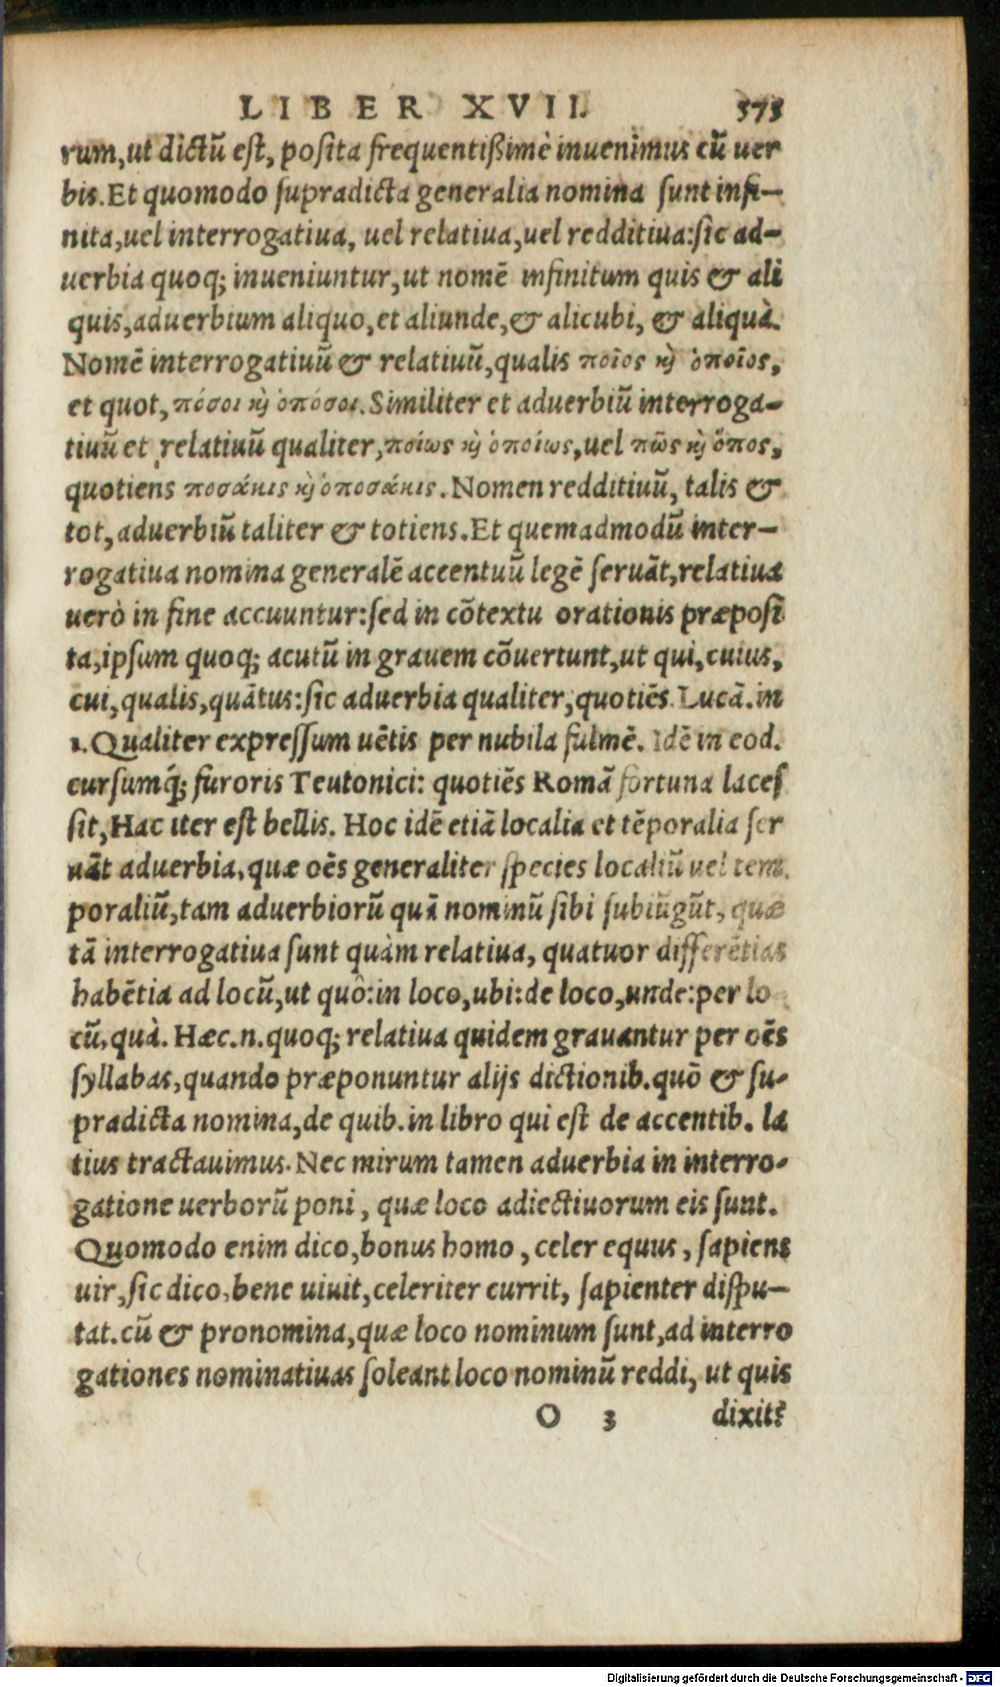 LIBER XVII. 575
rum,ut dictū est, posita frequentißimè inuenimus cū uer
bis.Et quomodo supradicta generalia nomina sunt infi-
nita,uel interrogatiua, uel relatiua,uel redditiua:sic ad-
uerbia quoq; inueniuntur,ut nomē infinitum quis & ali
quis,aduerbium aliquo,et aliunde,& alicubi, & aliquà.
Nomē interrogatiuū & relatiuū,qualis ποῖος ϗ̀ ὁποῖος,
et quot, πόσοι ϗ̀ ὁπόσοι. Similiter et aduerbiū interroga-
tiuū et relatiuū qualiter,ποίως ϗ̀ ὁποίως,uel πῶς ϗ̀ ὅπος,
quotiens ποσάκις ϗ̀ ὁποσάκις. Nomen redditiuū, talis &
tot,aduerbiū taliter & totiens.Et quemadmodū inter-
rogatiua nomina generalē accentuū legē seruāt,relatiua
uerò in fine accuuntur:sed in cōtextu orationis præposi
ta,ipsum quoq; acutū in grauem cōuertunt,ut qui,cuius,
cui,qualis,quātus:sic aduerbia qualiter,quotiēs. Lucā.in
1.Qualiter expressum uētis per nubila fulmē. Idē in eod.
cursumq́; furoris Teutonici: quotiēs Romā fortuna laces
sit,Hac iter est bellis. Hoc idē etiā localia et tēporalia ser
uāt aduerbia,quæ oēs generaliter species localiū uel tem.
poraliū,tam aduerbiorū quā nominū sibi subiūgūt, quæ
tā interrogatiua sunt quàm relatiua, quatuor differētias
habētia ad locū,ut quò:in loco,ubi:de loco,unde:per lo
cū,quà. Hæc.n.quoq; relatiua quidem grauantur per oēs
syllabas,quando præponuntur alijs dictionib.quō & su-
pradicta nomina,de quib.in libro qui est de accentib. la
tius tractauimus. Nec mirum tamen aduerbia in interro-
gatione uerborū poni, quæ loco adiectiuorum eis sunt.
Quomodo enim dico,bonus homo, celer equus, sapiens
uir,sic dico,bene uiuit,celeriter currit, sapienter dispu-
tat.cū & pronomina,quæ loco nominum sunt,ad interro
gationes nominatiuas soleant loco nominū reddi, ut quis
O 3 dixit?
Digitalisierung gefördert durch die Deutsche Forschungsgemeinschaft - DFG